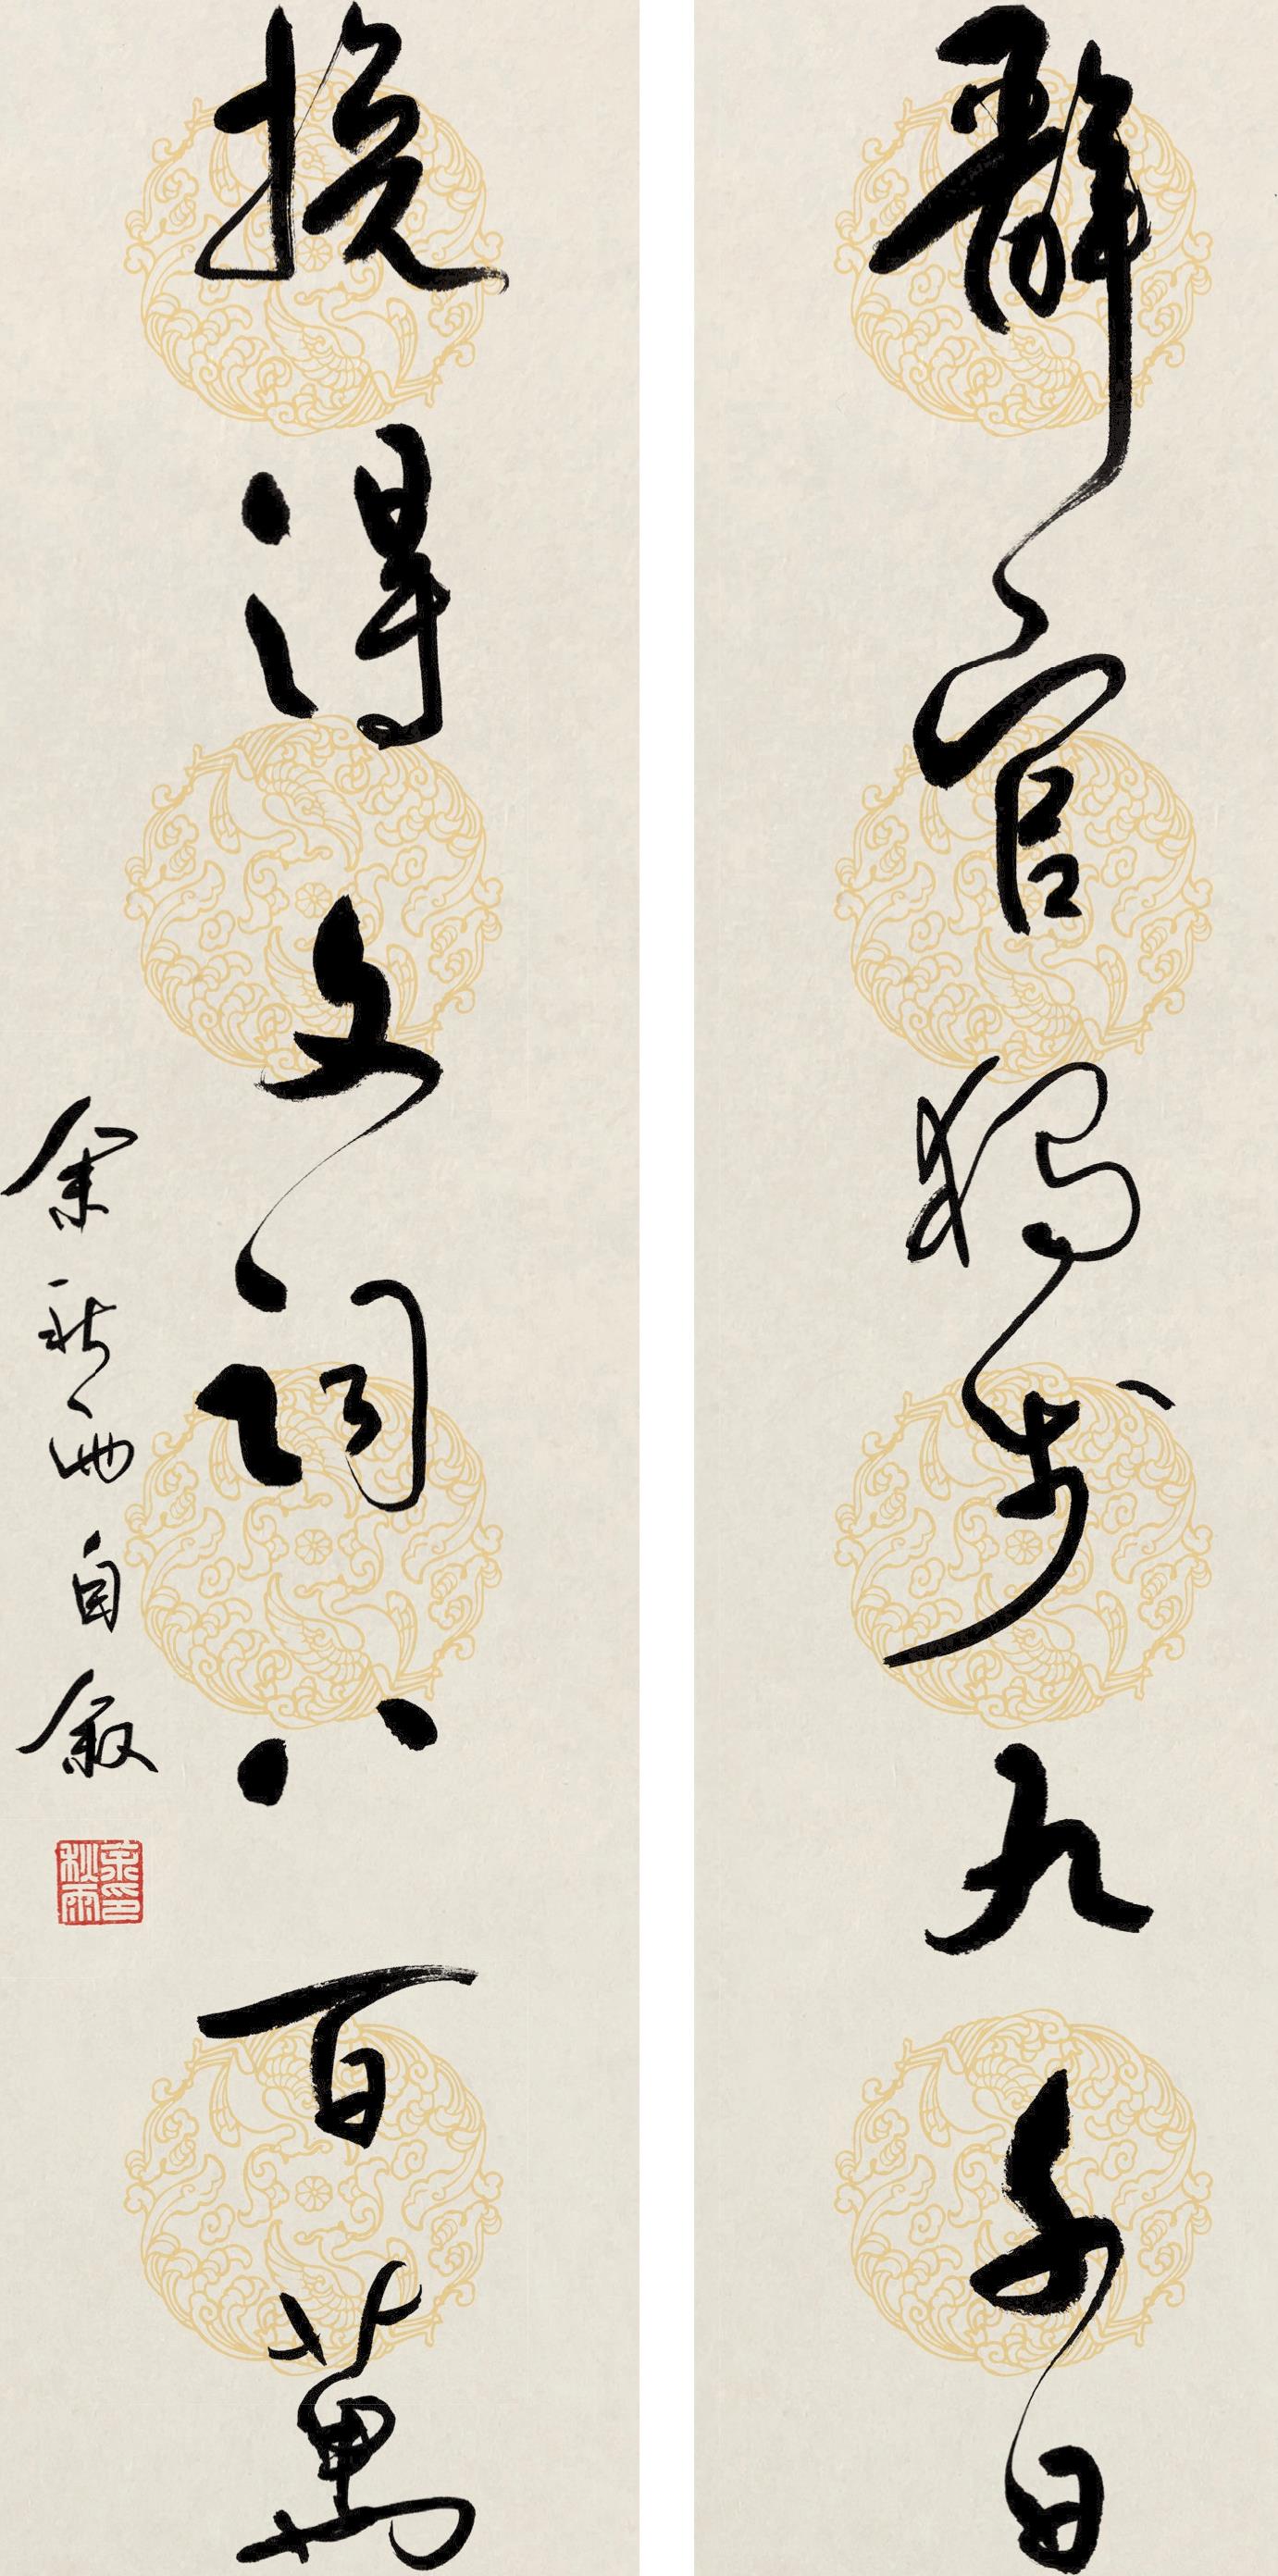 辭官獨步九千日
換得文詞八百萬
余秋雨自叙
余印秋雨